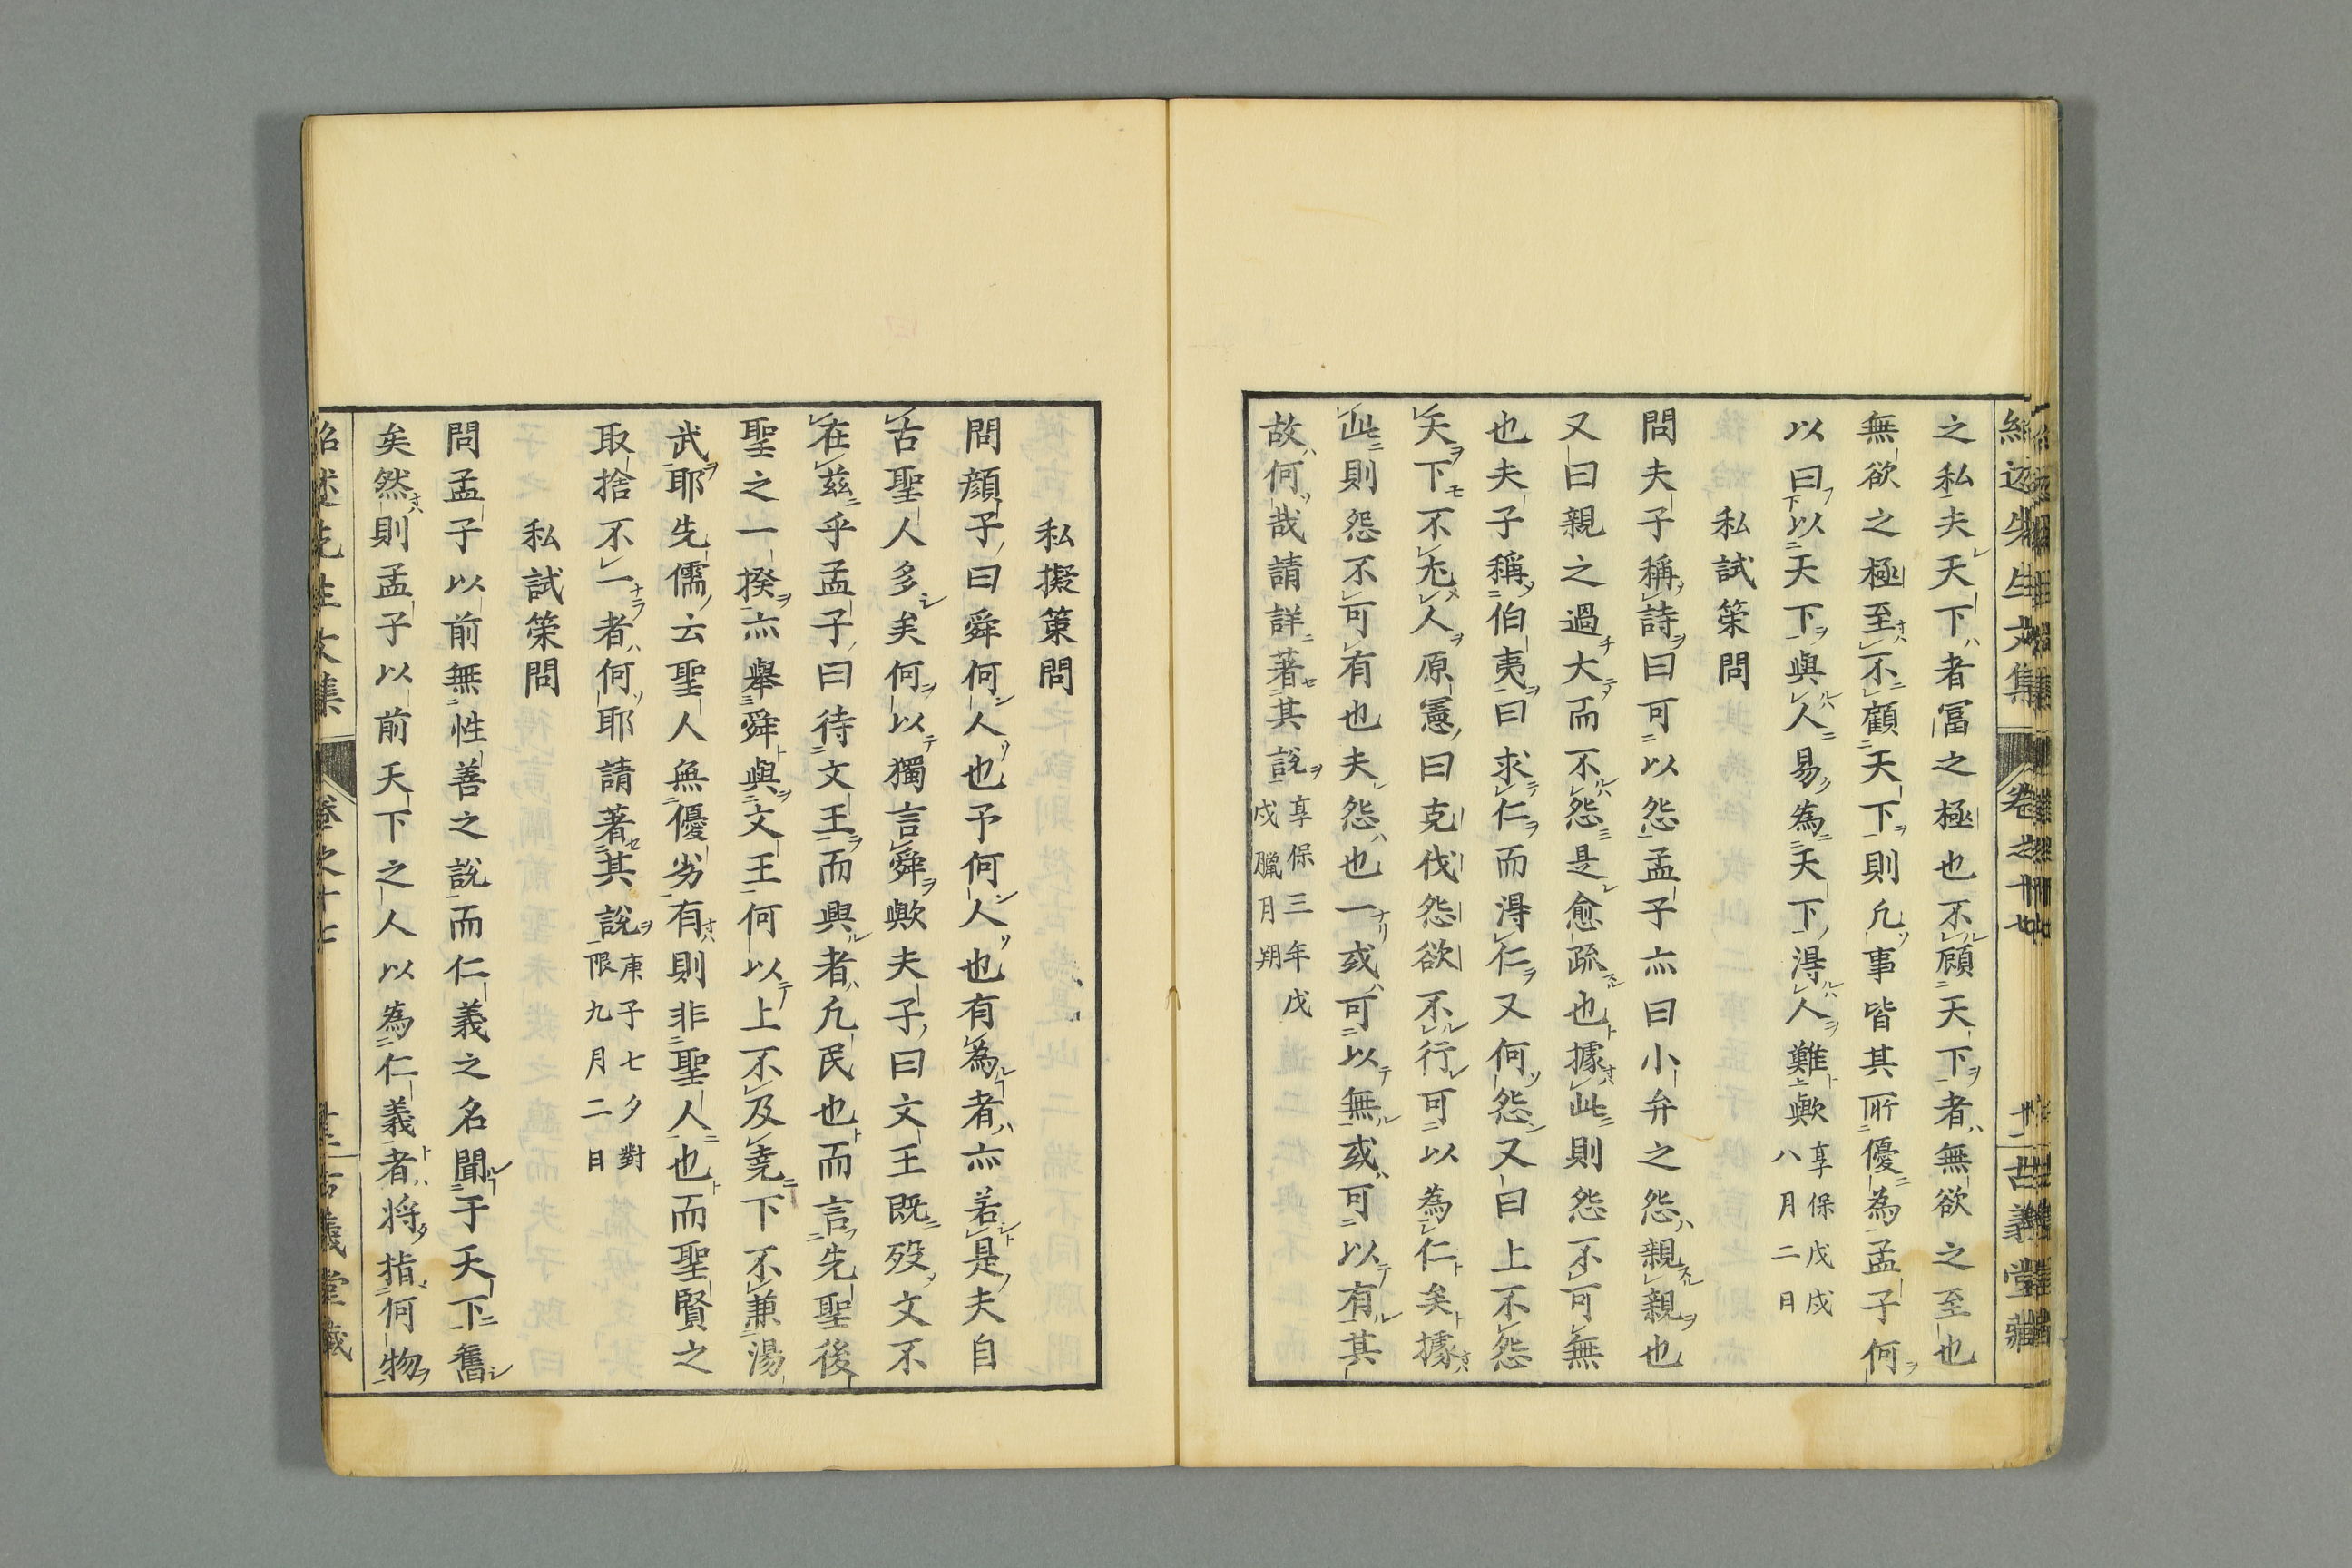 之私夫天下者冨之極也不顧天下者無欲之至也
無欲之極至不顧天下則凢事皆其所優為孟子何
以曰以天下與人易為天下得人難歟享保戊戌八月二日
私試策問
問夫子稱詩曰可以怨孟子亦曰小弁之怨親親也
又曰親之過大而不怨是愈疏也據此則怨不可無
也夫子稱伯夷曰求仁而得仁又何怨又曰上不怨
天下不尤人原憲曰克伐怨欲不行可以為仁矣據
此則怨不可有也夫怨也一或可以無或可以有其
故何哉請詳著其說享保三年戊戌臘月朔
私擬策問
問顏子曰舜何人也予何人也有為者亦若是夫自
古聖人多矣何以獨言舜歟夫子曰文王既歿文不
在茲乎孟子曰待文王而興者凢民也而言先聖後
聖之一揆亦舉舜與文王何以上不及堯下不兼湯
武耶先儒云聖人無優劣有則非聖人也而聖賢之
取捨不一者何耶請著其說庚子七夕對限九月二日
私試策問
問孟子以前無性善之說而仁義之名聞于天下舊
矣然則孟子以前天下之人以為仁義者將指何物
紹述先生文集 卷之十七 古義堂藏